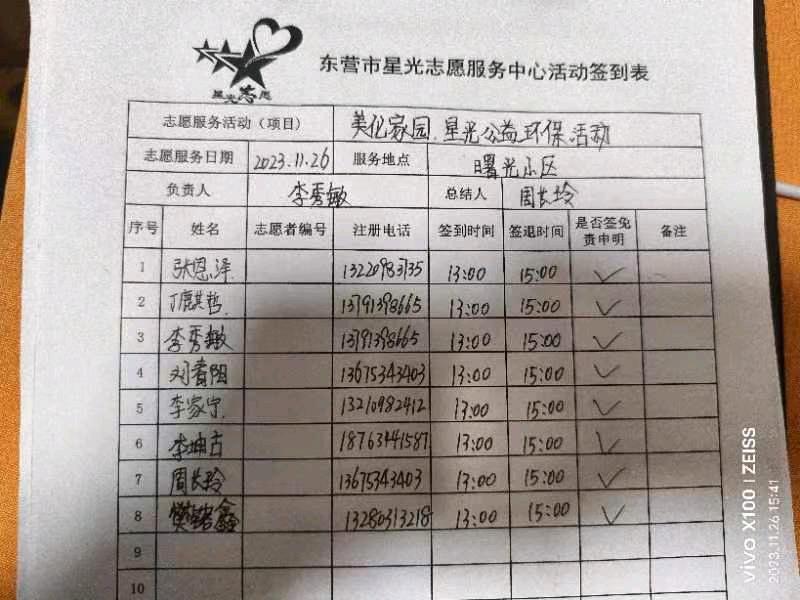 星光志愿
东营市星光志愿服务中心活动签到表
志愿服务活动（项目） 美化家园.星光公益环保活动
志愿服务日期 2023.11.26 服务地点 曙光小区
负责人 李秀敏 总结人 周长玲
序号 姓名 志愿者编号 注册电话 签到时间 签退时间 是否签免责申明 备注
1 张恩泽 13220983735 13:00 15:00 ✓
2 丁麒哲 13791398665 13:00 15:00 ✓
3 李秀敏 13791398665 13:00 15:00 ✓
4 刘 阳 13675343403 13:00 15:00 ✓
5 李家宁 13210982412 13:00 15:00 ✓
6 李坤 18763441587 13:00 15:00 ✓
7 周长玲 13675343403 13:00 15:00 ✓
8 鑫 13280313218 13:00 15:00 ✓
9
10
vivo X100 | ZEISS
2023.11.26 15:41